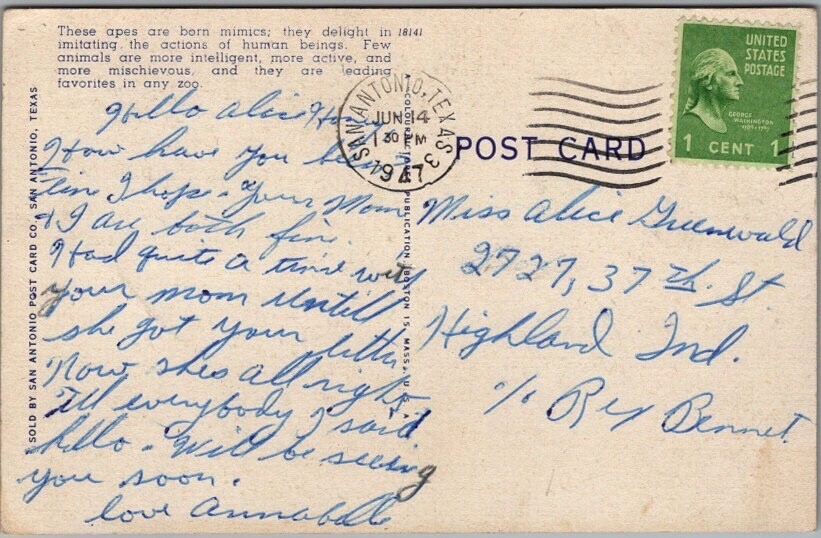 These apes are born mimics; they delight in 18141
imitating the actions of human beings. Few
animals are more intelligent, more active, and
more mischievous, and they are leading
favorites in any zoo.
Hello Alice Hon
How have you been
fine I hope. Your Mom
+ I are both fine.
Had quite a time with
your mom Untill
she got your letter
Now shes all right
Tell everybody I said
hello. Will be seeing
you soon.
love Annabelle
SOLD BY SAN ANTONIO POST CARD CO., SAN ANTONIO, TEXAS
PUBLICATION BOSTON 15, MASS., U.S.A.
SAN ANTONIO, TEXAS 3
JUN 14
1 30 PM
1947
POST CARD
UNITED
STATES
POSTAGE
GEORGE
WASHINGTON
1 CENT 1
Miss Alice Greenwald
2727, 37th. St.
Highland Ind.
c/o Rex Bennet.